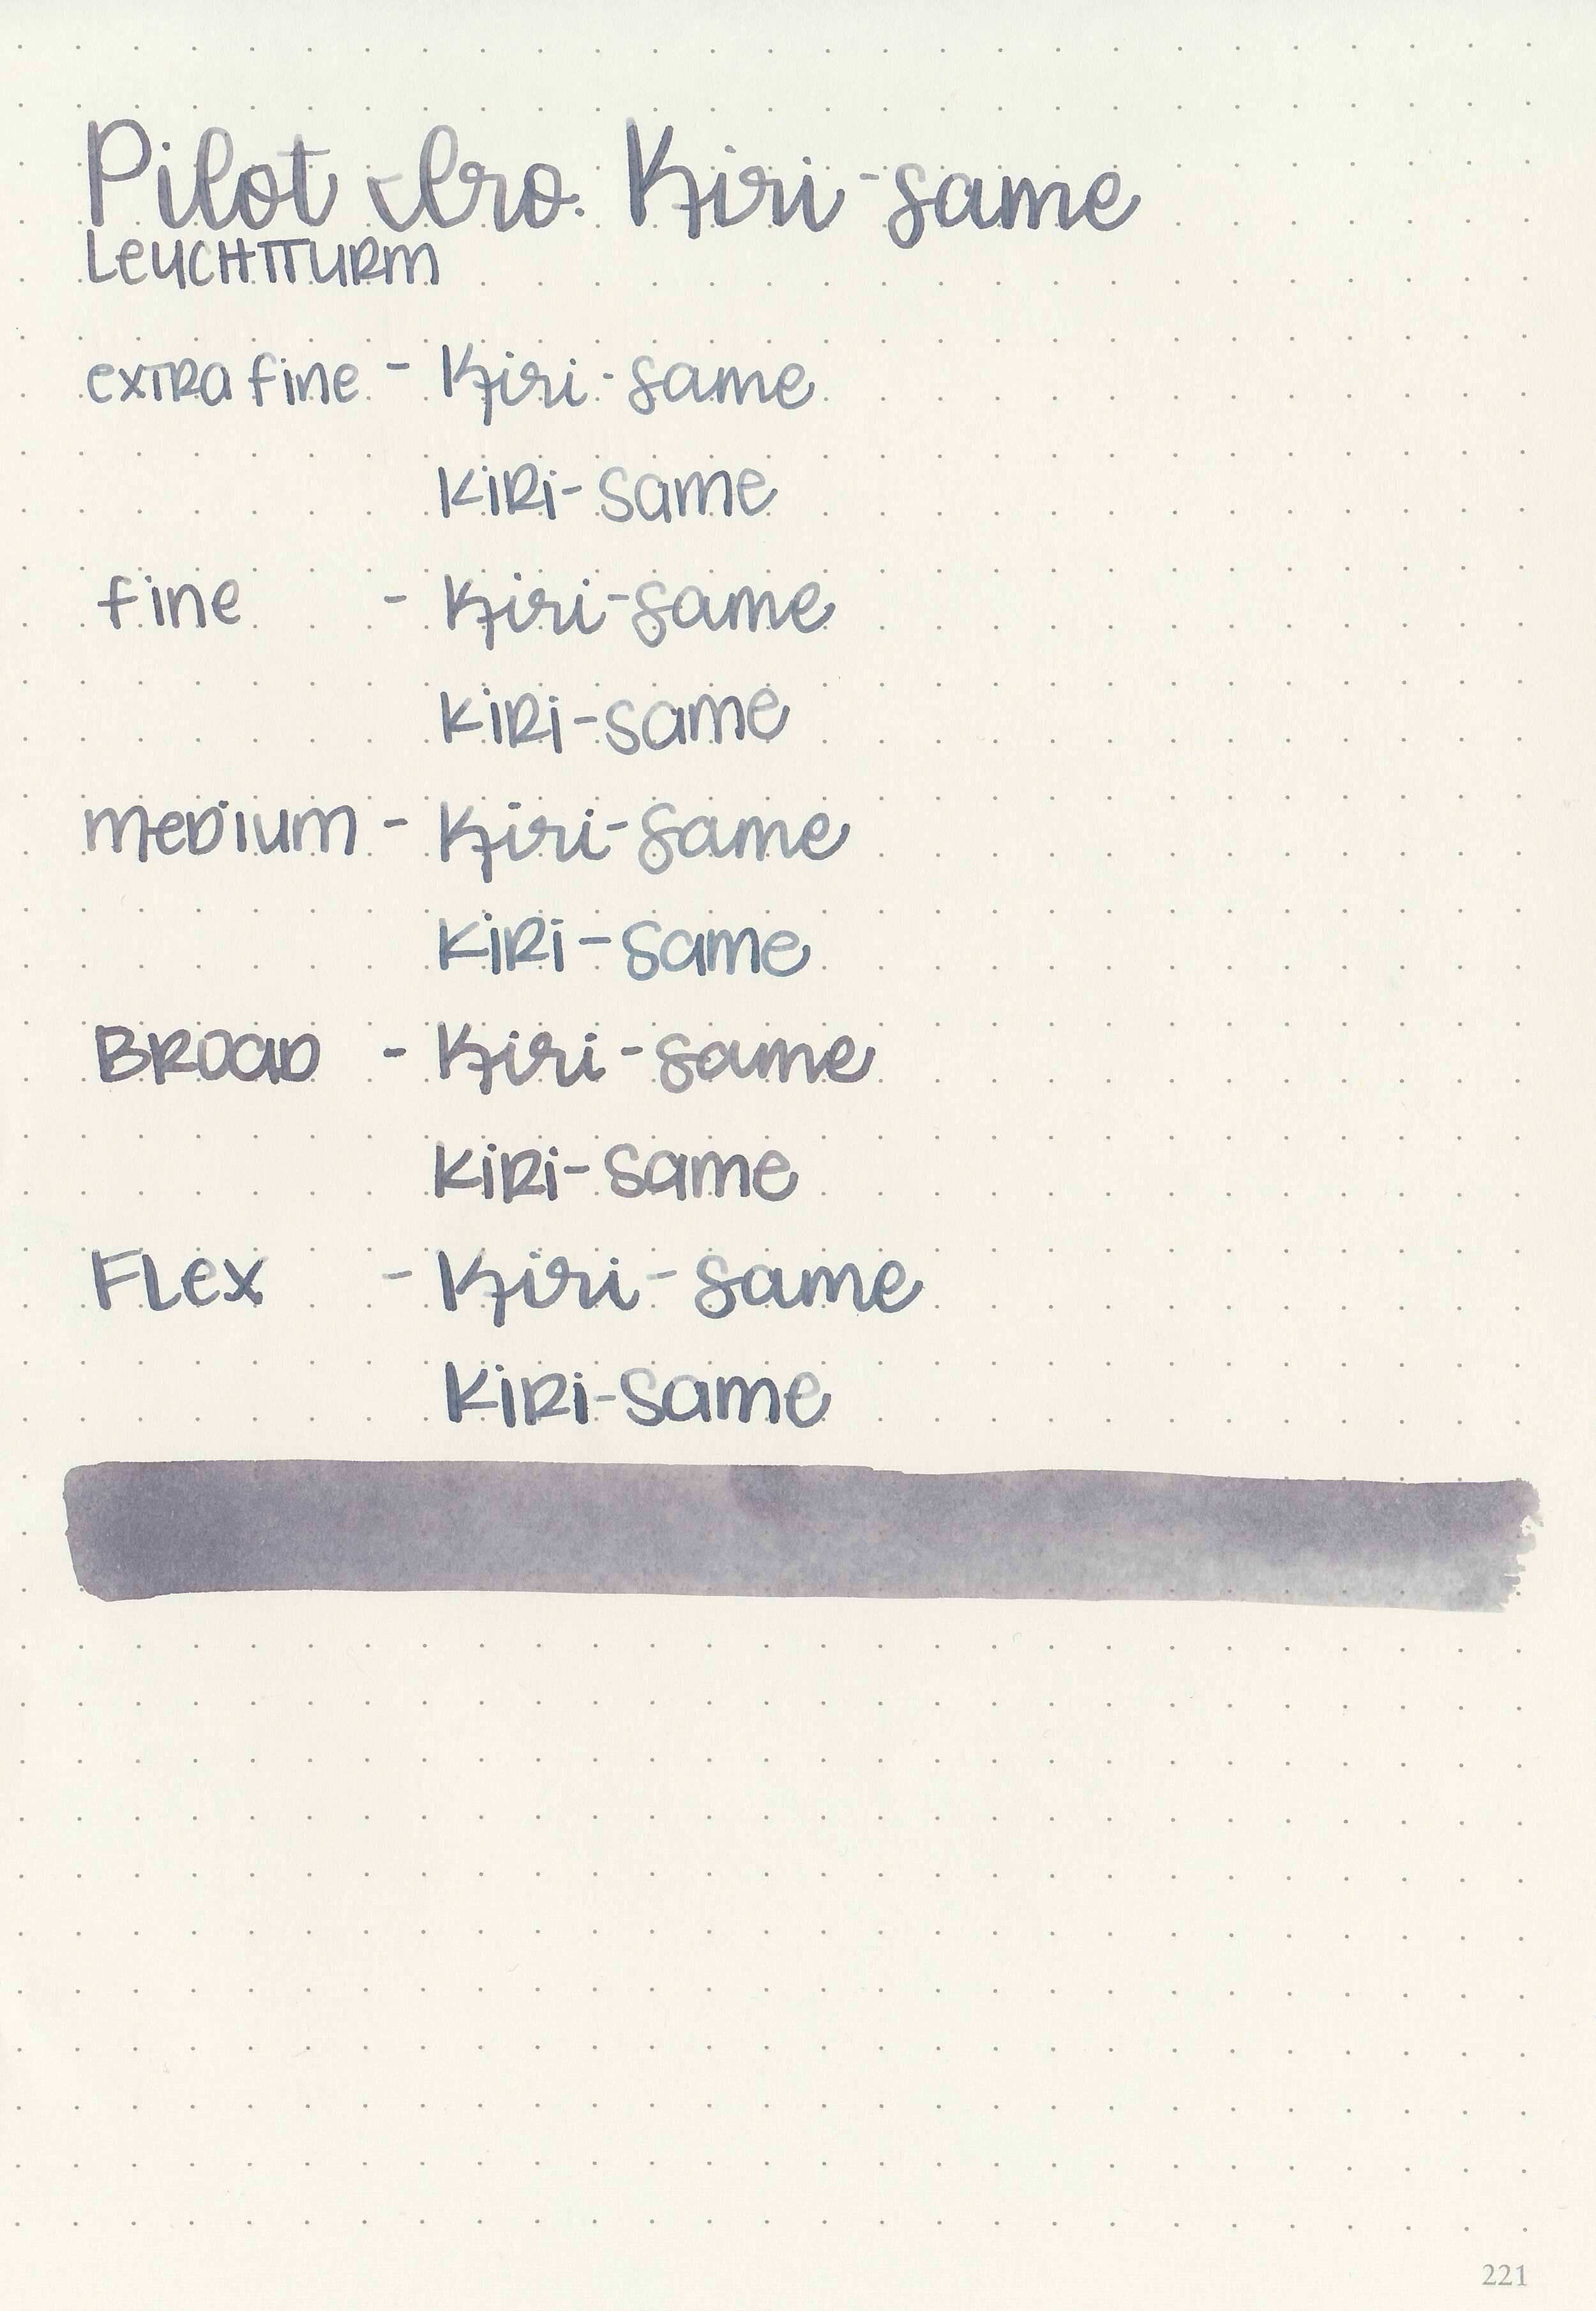 Pilot Iro. Kiri-same
Leuchtturm
extra fine - Kiri-same
Kiri-same
fine - Kiri-same
Kiri-same
medium - Kiri-same
Kiri-same
Broad - Kiri-same
Kiri-same
Flex - Kiri-same
Kiri-same
221